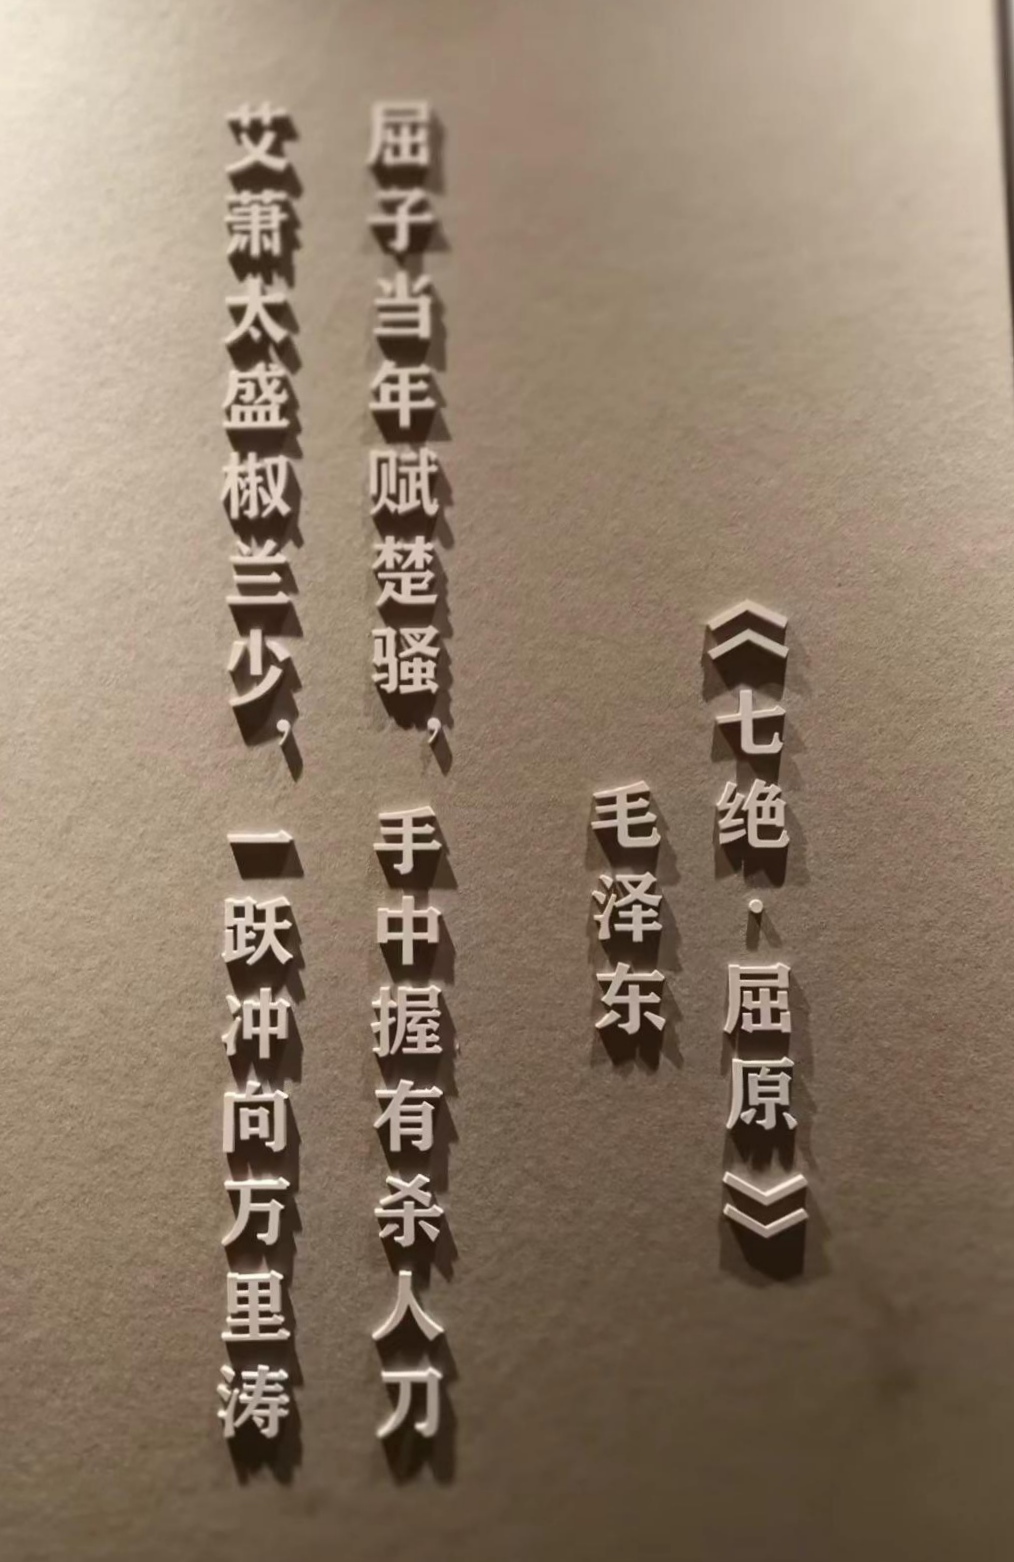 《七绝·屈原》
毛泽东
屈子当年赋楚骚，手中握有杀人刀
艾萧太盛椒兰少，一跃冲向万里涛